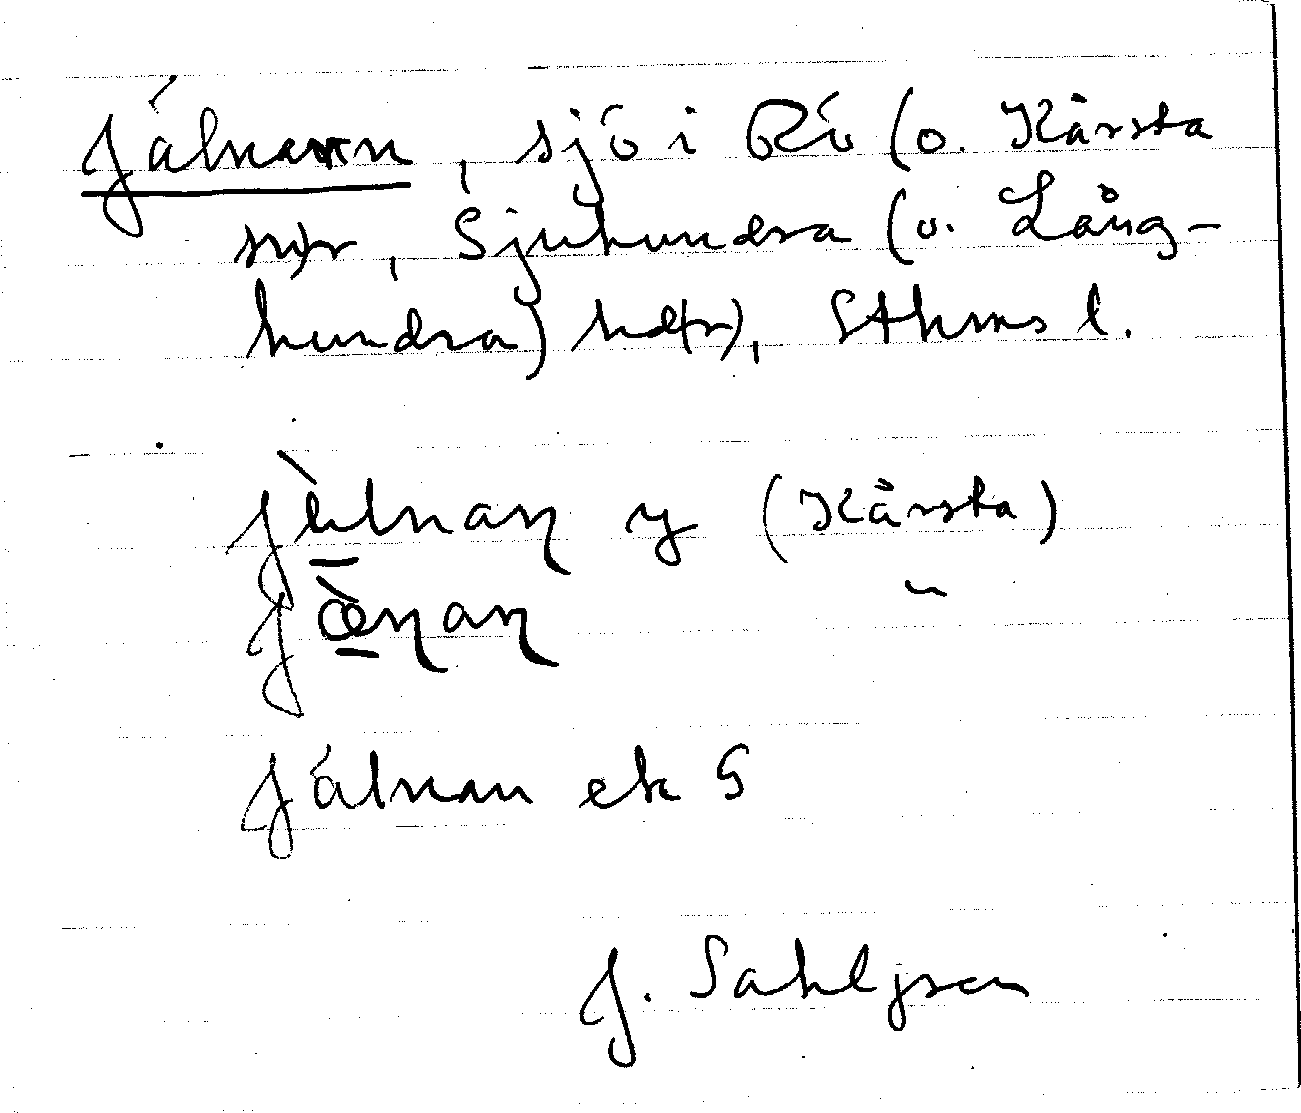 Jälnan, sjö i Rö (o. Kårsta
snr, Sjuhundra (o. Lång-
hundra) hd(r), Sthms l.
jèlnaɳ y (Kårsta)
jæ̀ɳaɳ "
Jälnan ek S
J. Sahlgren